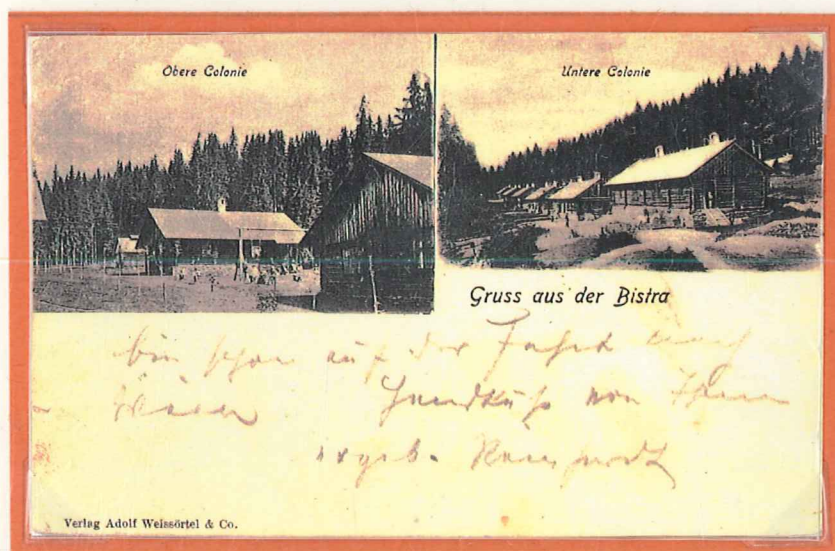 Obere Colonie
Untere Colonie
Gruss aus der Bistra
bin schon auf der Fahrt nach
Wien Handkuß von Ihrem
ergeb.
Verlag Adolf Weissörtel & Co.